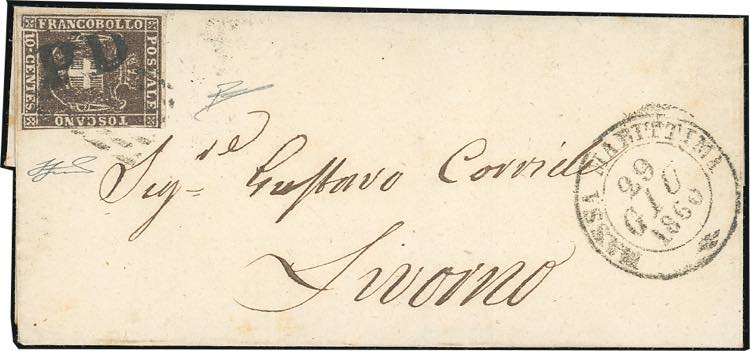 FRANCOBOLLO
POSTALE
TOSCANO
10-CENTES
PD
Sig.re Gustavo Corridi
Livorno
MASSA MARITTIMA
29
GIU
1860